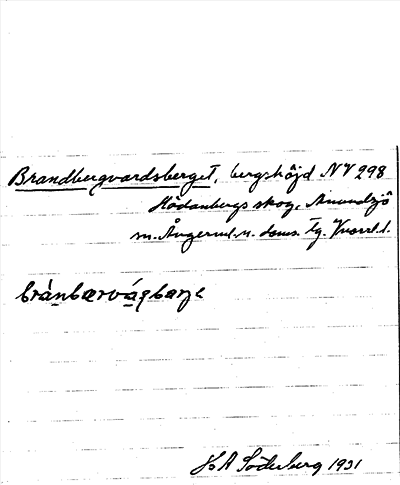 Brandbergvardsberget, bergshöjd NV 298
Hädanbergs skog, Anundsjö
sn. Ångerml. n. doms. tg. Vnorrl. l.
brànbærvá̱ʂbærjə
H A Söderberg 1931